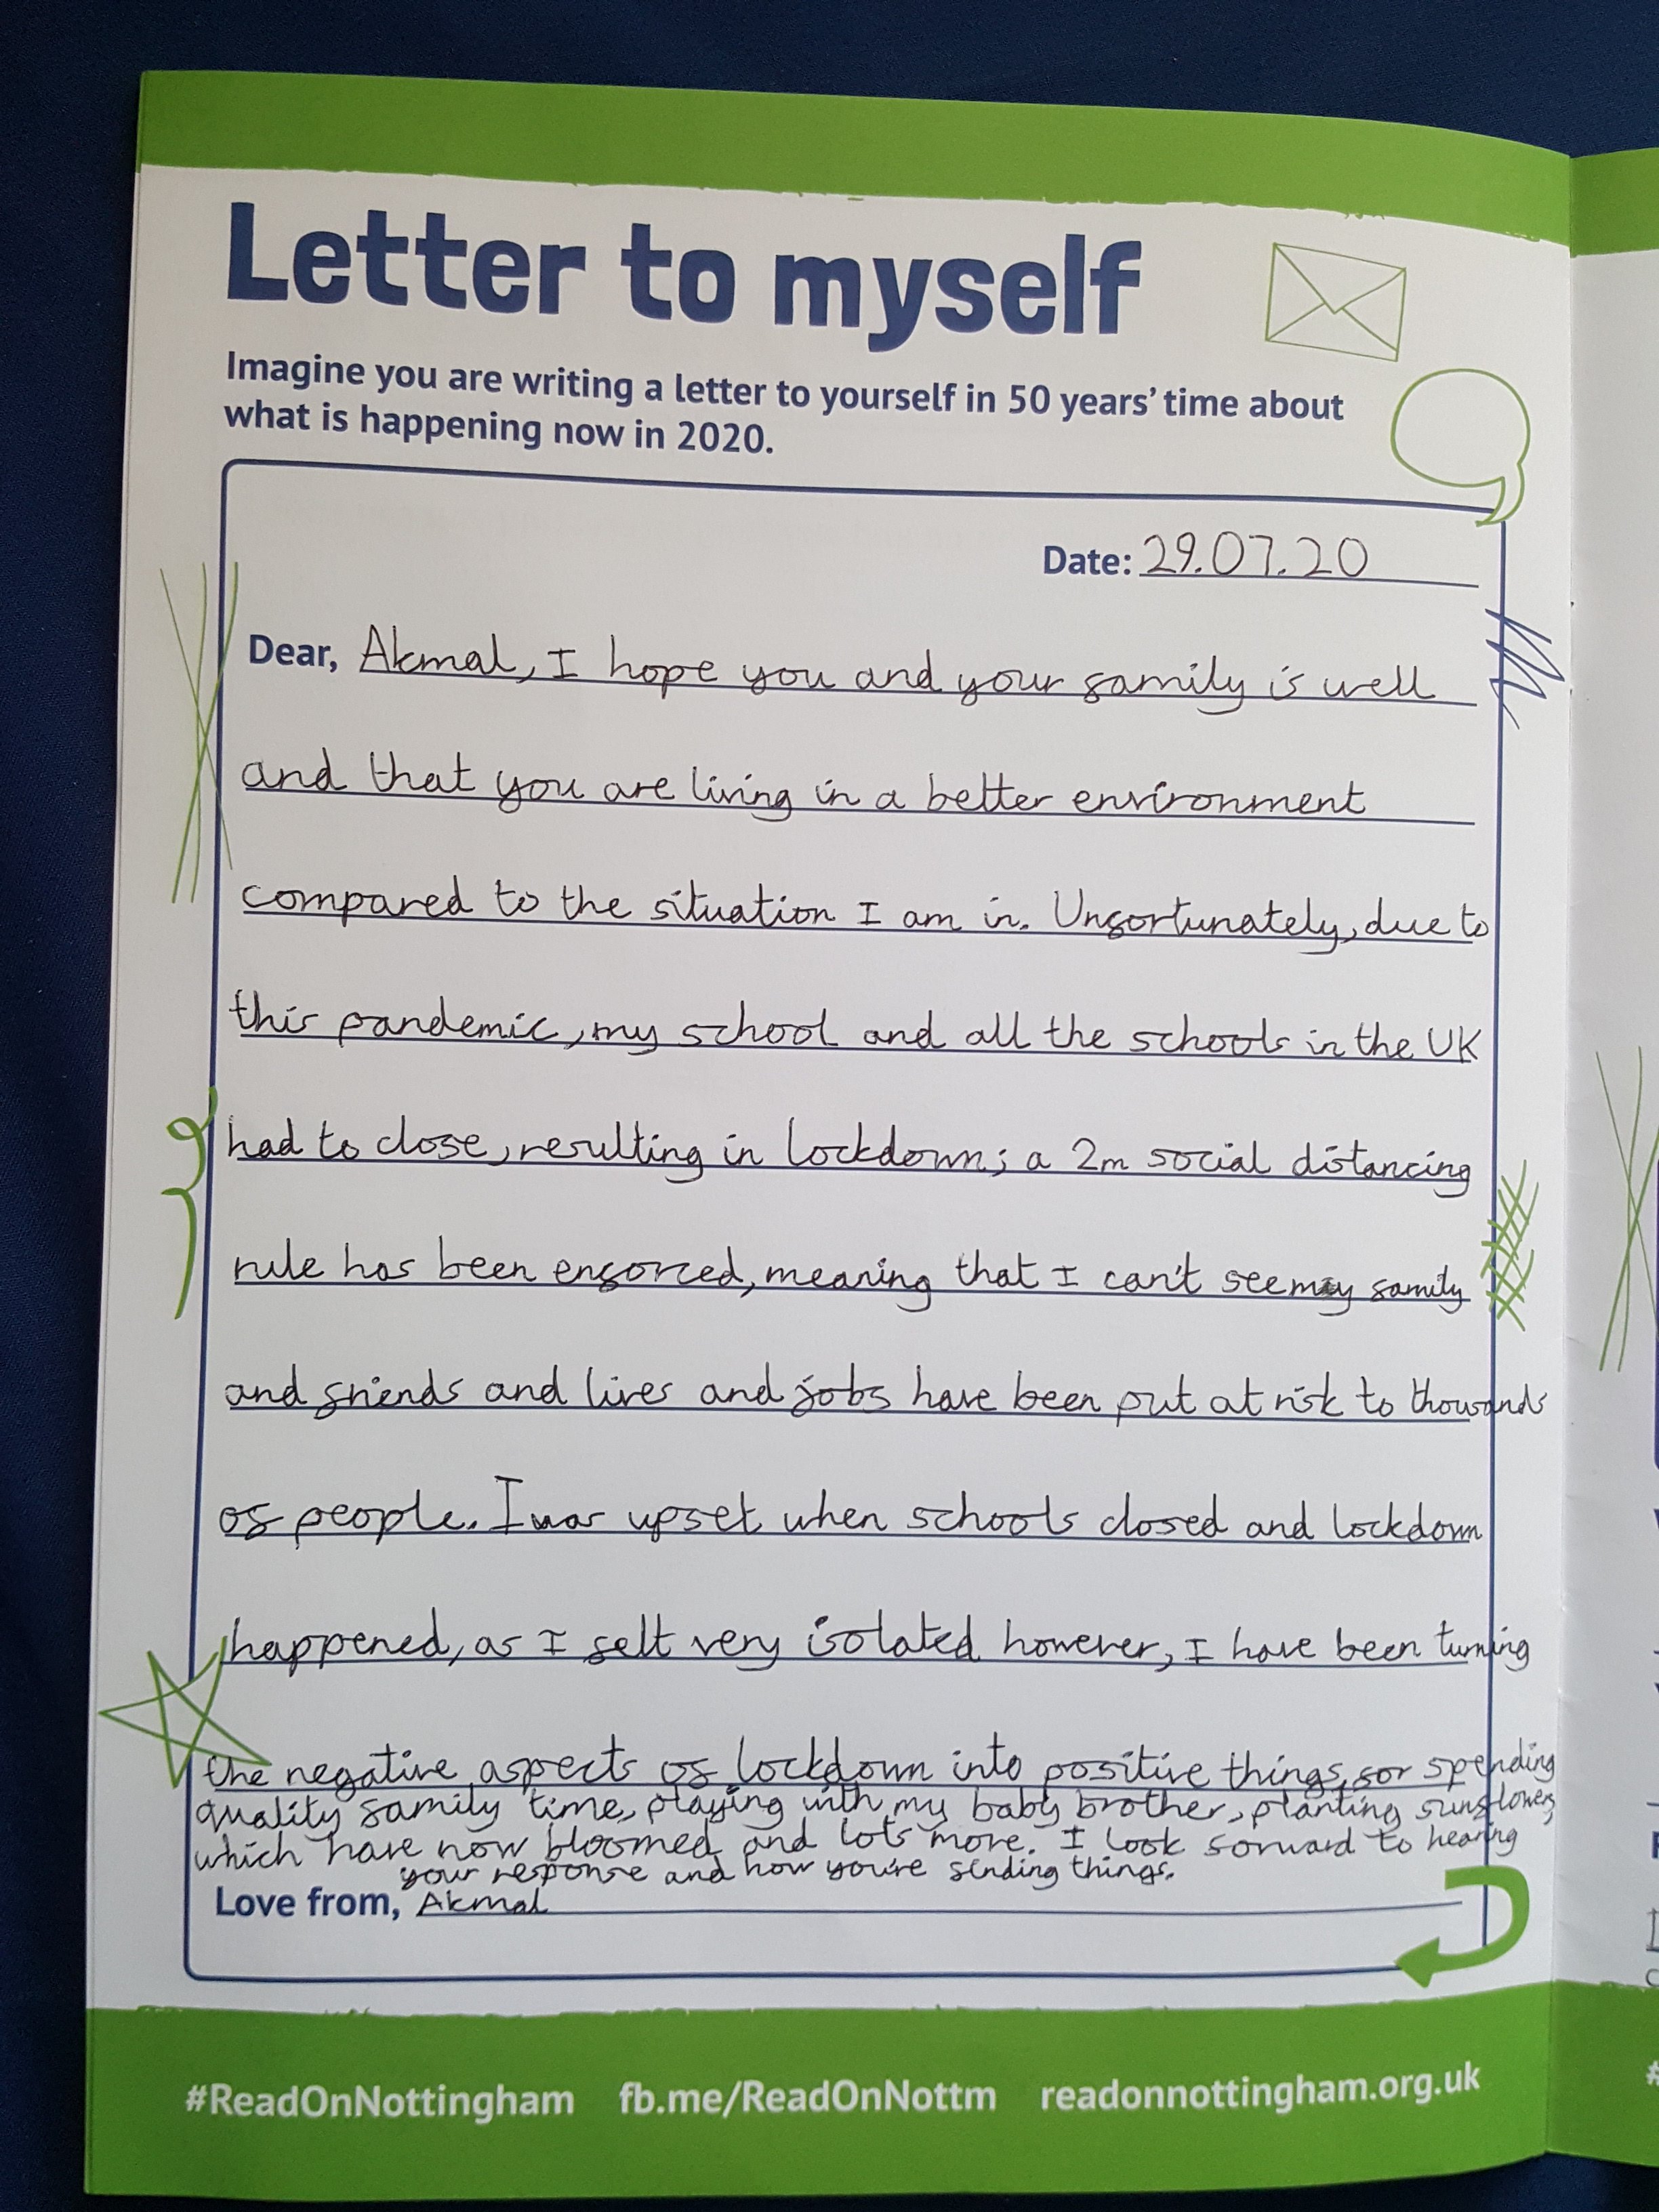 Letter to myself
Imagine you are writing a letter to yourself in 50 years' time about
what is happening now in 2020.
Date: 29.07.20
Dear, Akmal, I hope you and your family is well
and that you are living in a better environment
compared to the situation I am in. Unfortunately, due to
this pandemic, my school and all the schools in the UK
had to close, resulting in lockdown; a 2m social distancing
rule has been enforced, meaning that I can't see my family
and friends and lives and jobs have been put at risk to thousands
of people. I was upset when schools closed and lockdown
happened, as I felt very isolated however, I have been turning
the negative aspects of lockdown into positive things, for spending
quality family time, playing with my baby brother, planting sunflowers
which have now bloomed and lots more. I look forward to hearing
your response and how you're finding things.
Love from, Akmal
#ReadOnNottingham fb.me/ReadOnNottm readonnottingham.org.uk